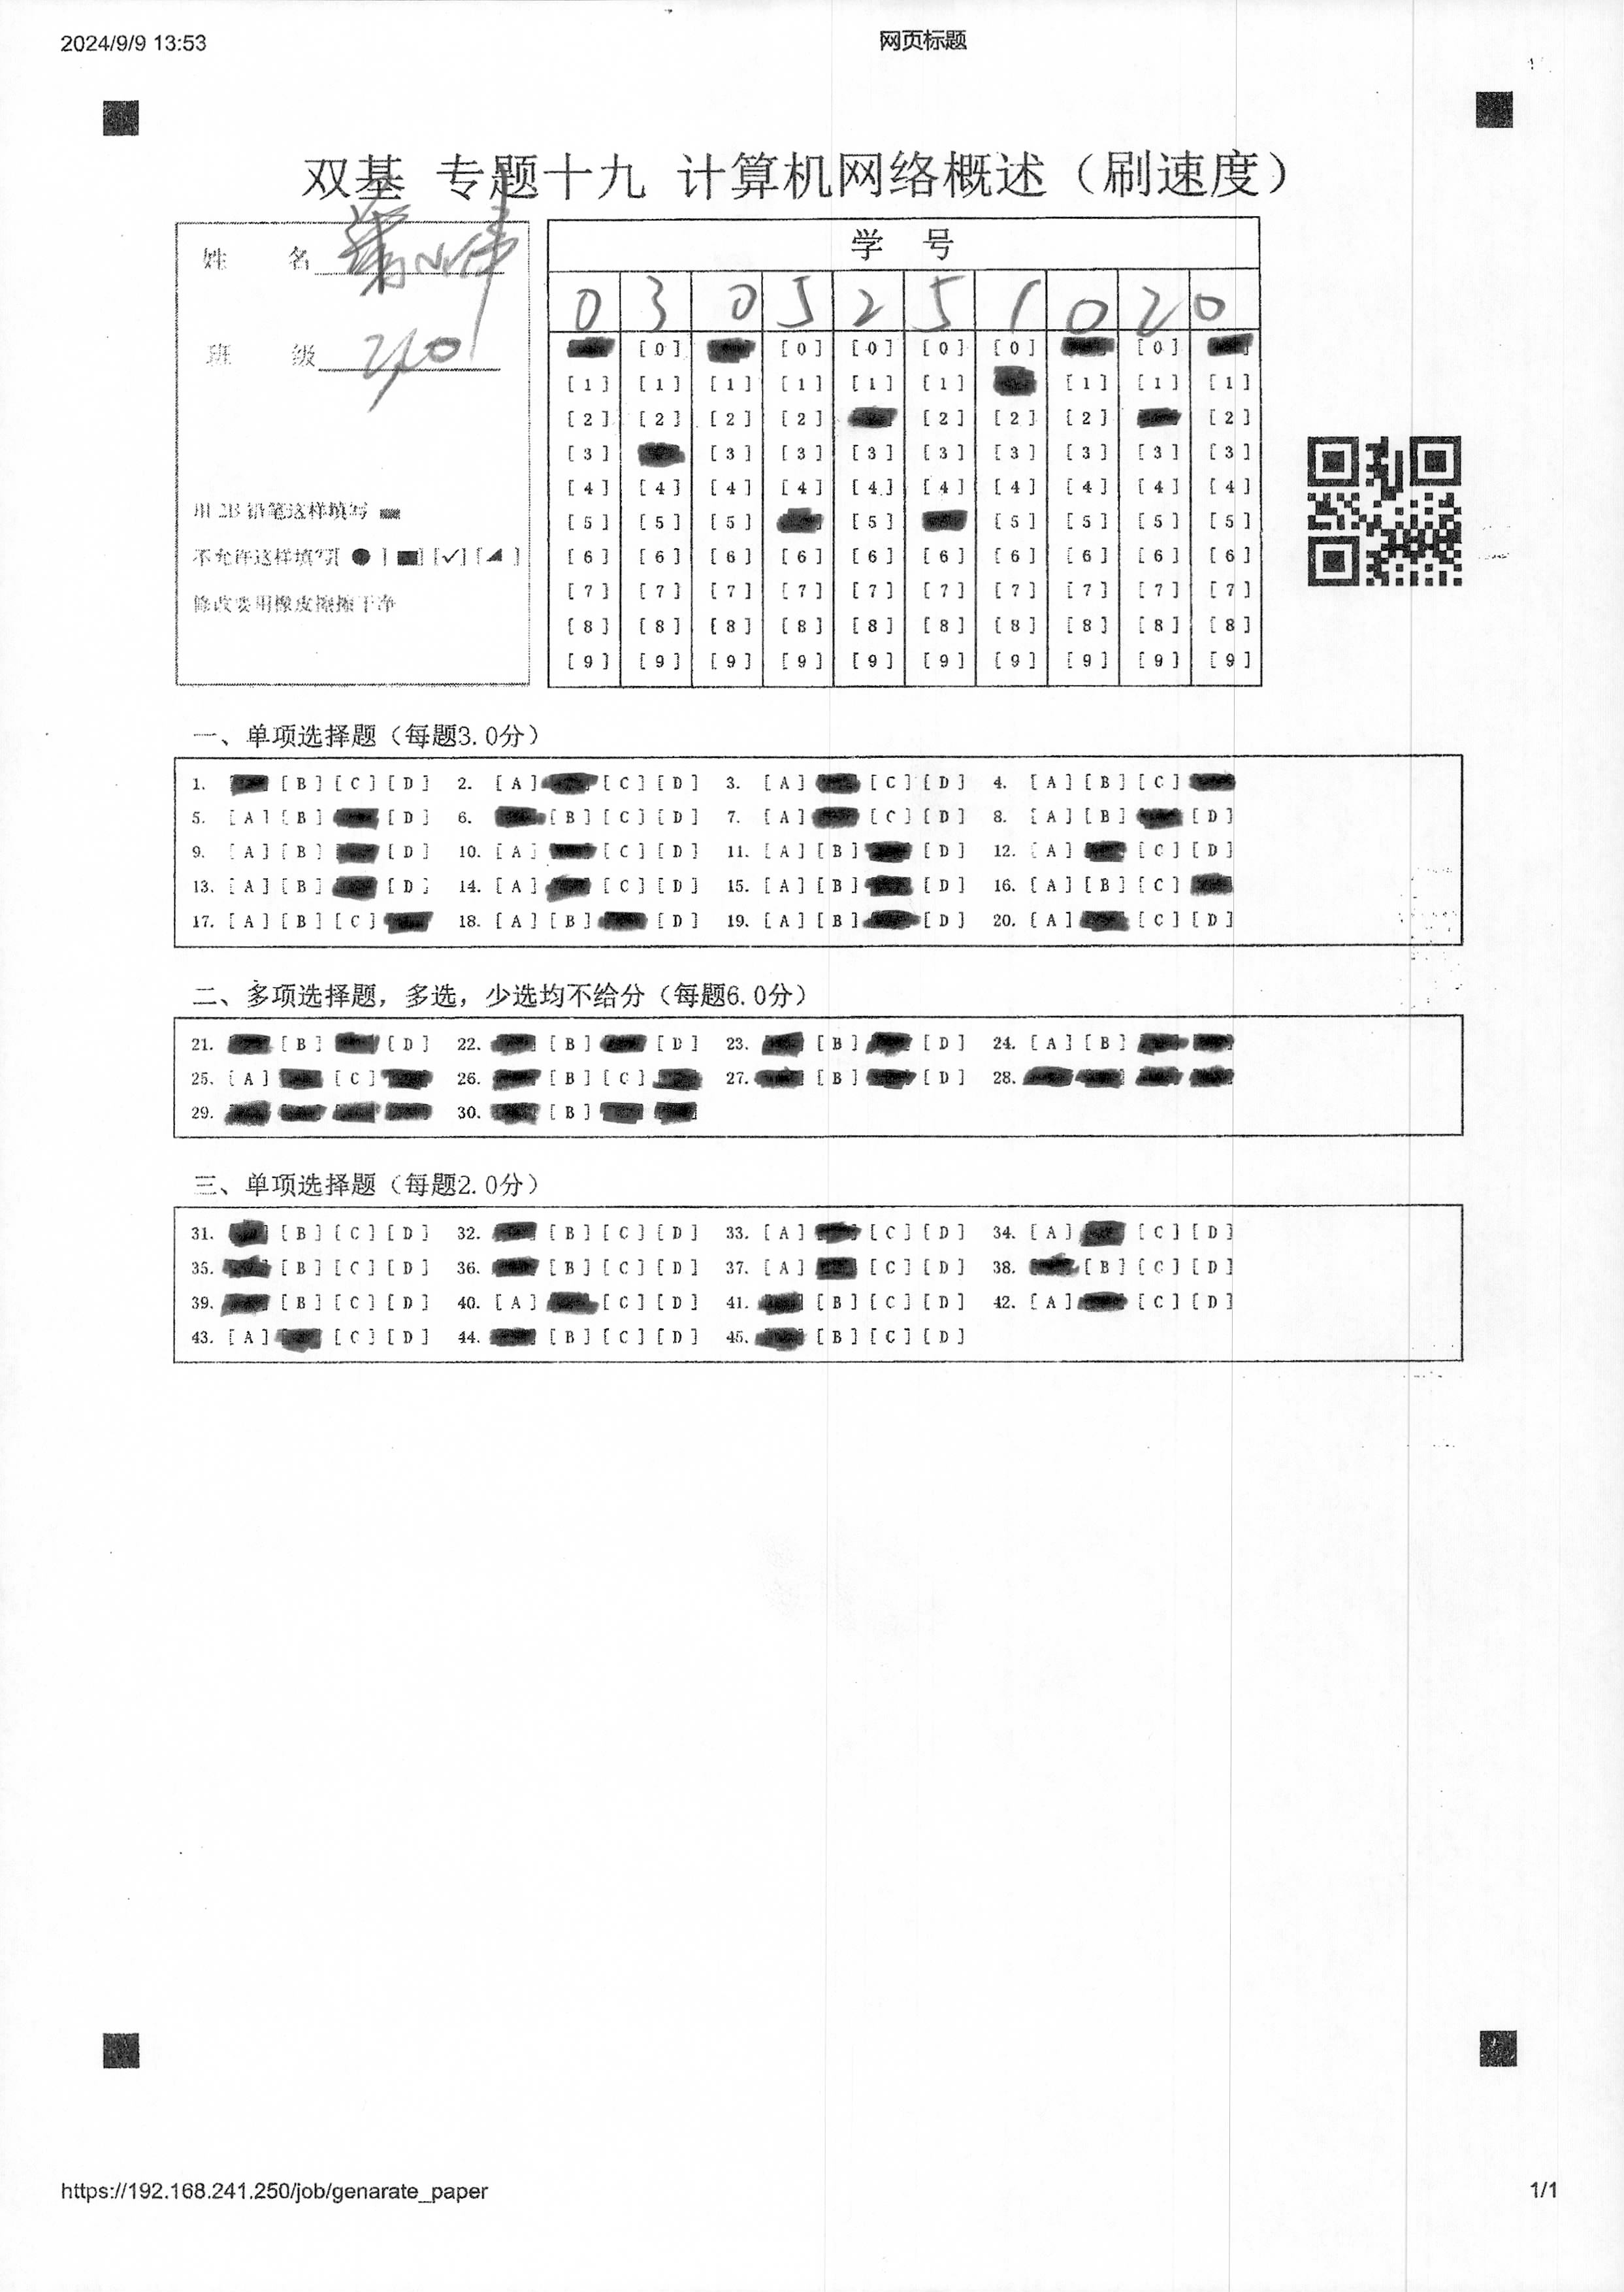 2024/9/9 13:53
网页标题
双基 专题十九 计算机网络概述（刷速度）
姓 名
班 级 210
用2B铅笔这样填写
不允许这样填写[●] [■] [✓] [◢]
修改要用橡皮擦擦干净
学 号
0 3 0 5 2 5 1 0 2 0
[0] [0] [0] [0] [0] [0]
[1] [1] [1] [1] [1] [1] [1] [1] [1]
[2] [2] [2] [2] [2] [2] [2] [2]
[3] [3] [3] [3] [3] [3] [3] [3] [3]
[4] [4] [4] [4] [4] [4] [4] [4] [4] [4]
[5] [5] [5] [5] [5] [5] [5] [5]
[6] [6] [6] [6] [6] [6] [6] [6] [6] [6]
[7] [7] [7] [7] [7] [7] [7] [7] [7] [7]
[8] [8] [8] [8] [8] [8] [8] [8] [8] [8]
[9] [9] [9] [9] [9] [9] [9] [9] [9] [9]
一、单项选择题（每题3.0分）
1. [B] [C] [D] 2. [A] [C] [D] 3. [A] [C] [D] 4. [A] [B] [C]
5. [A] [B] [D] 6. [B] [C] [D] 7. [A] [C] [D] 8. [A] [B] [D]
9. [A] [B] [D] 10. [A] [C] [D] 11. [A] [B] [D] 12. [A] [C] [D]
13. [A] [B] [D] 14. [A] [C] [D] 15. [A] [B] [D] 16. [A] [B] [C]
17. [A] [B] [C] 18. [A] [B] [D] 19. [A] [B] [D] 20. [A] [C] [D]
二、多项选择题，多选，少选均不给分（每题6.0分）
21. [B] [D] 22. [B] [D] 23. [B] [D] 24. [A] [B]
25. [A] [C] 26. [B] [C] 27. [B] [D] 28.
29. 30. [B]
三、单项选择题（每题2.0分）
31. [B] [C] [D] 32. [B] [C] [D] 33. [A] [C] [D] 34. [A] [C] [D]
35. [B] [C] [D] 36. [B] [C] [D] 37. [A] [C] [D] 38. [B] [C] [D]
39. [B] [C] [D] 40. [A] [C] [D] 41. [B] [C] [D] 42. [A] [C] [D]
43. [A] [C] [D] 44. [B] [C] [D] 45. [B] [C] [D]
https://192.168.241.250/job/genarate_paper
1/1